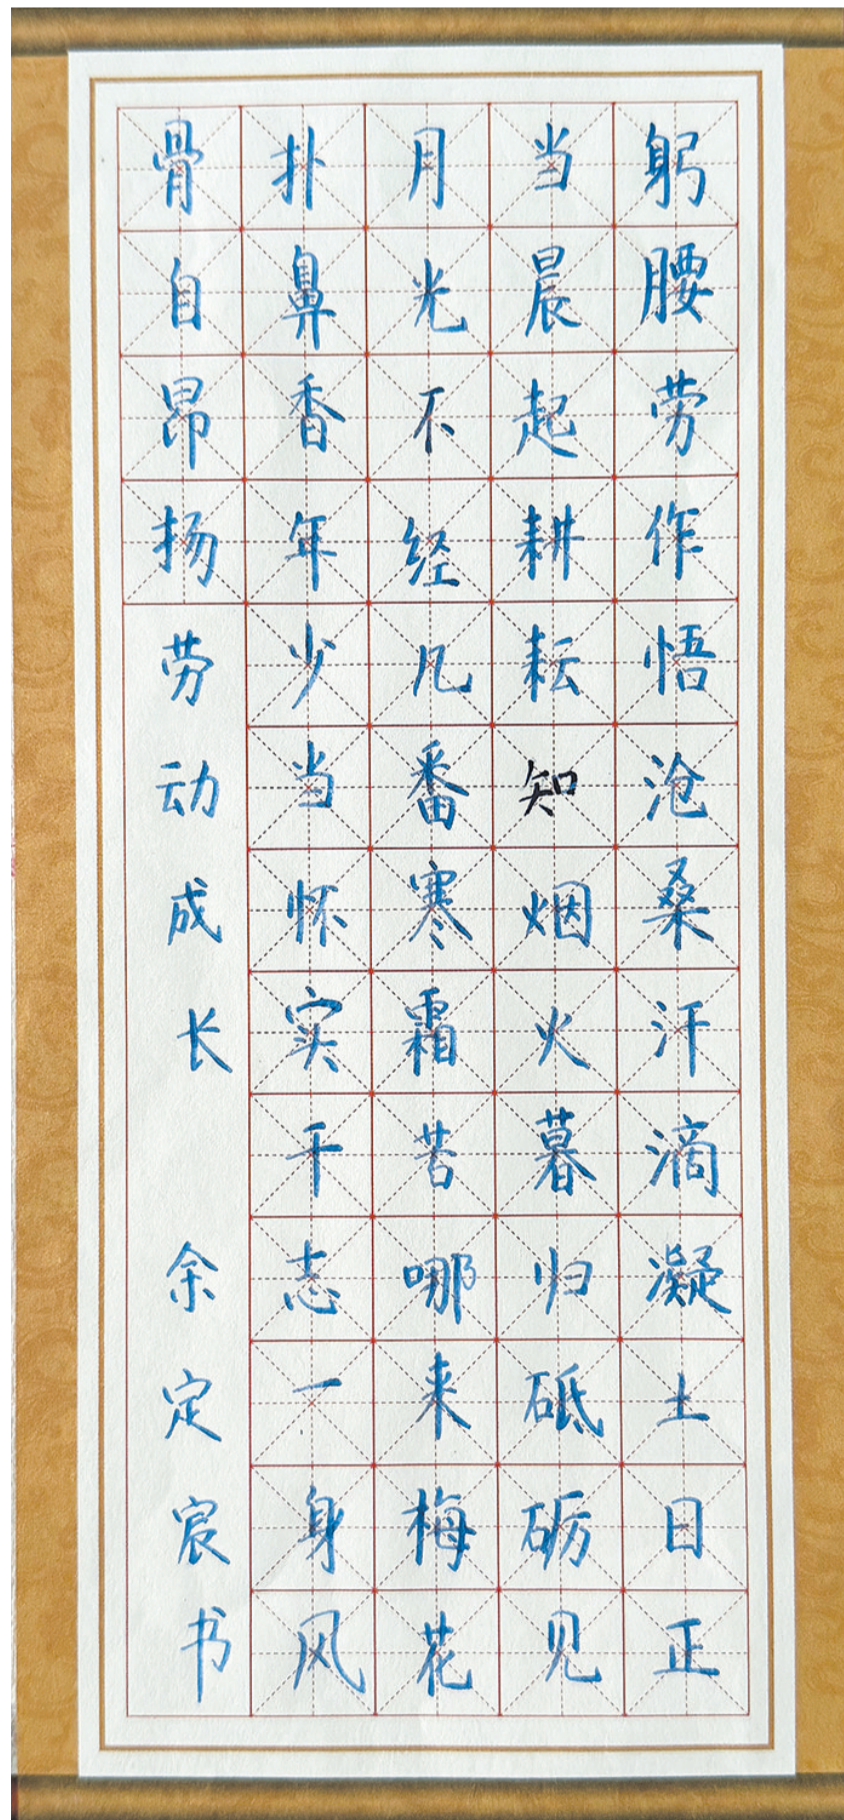 躬腰劳作悟沧桑汗滴凝土日正
当晨起耕耘知烟火暮归砥砺见
月光不经几番寒霜苦哪来梅花
扑鼻香年少当怀实干志一身风
骨自昂扬劳动成长 余定宸书